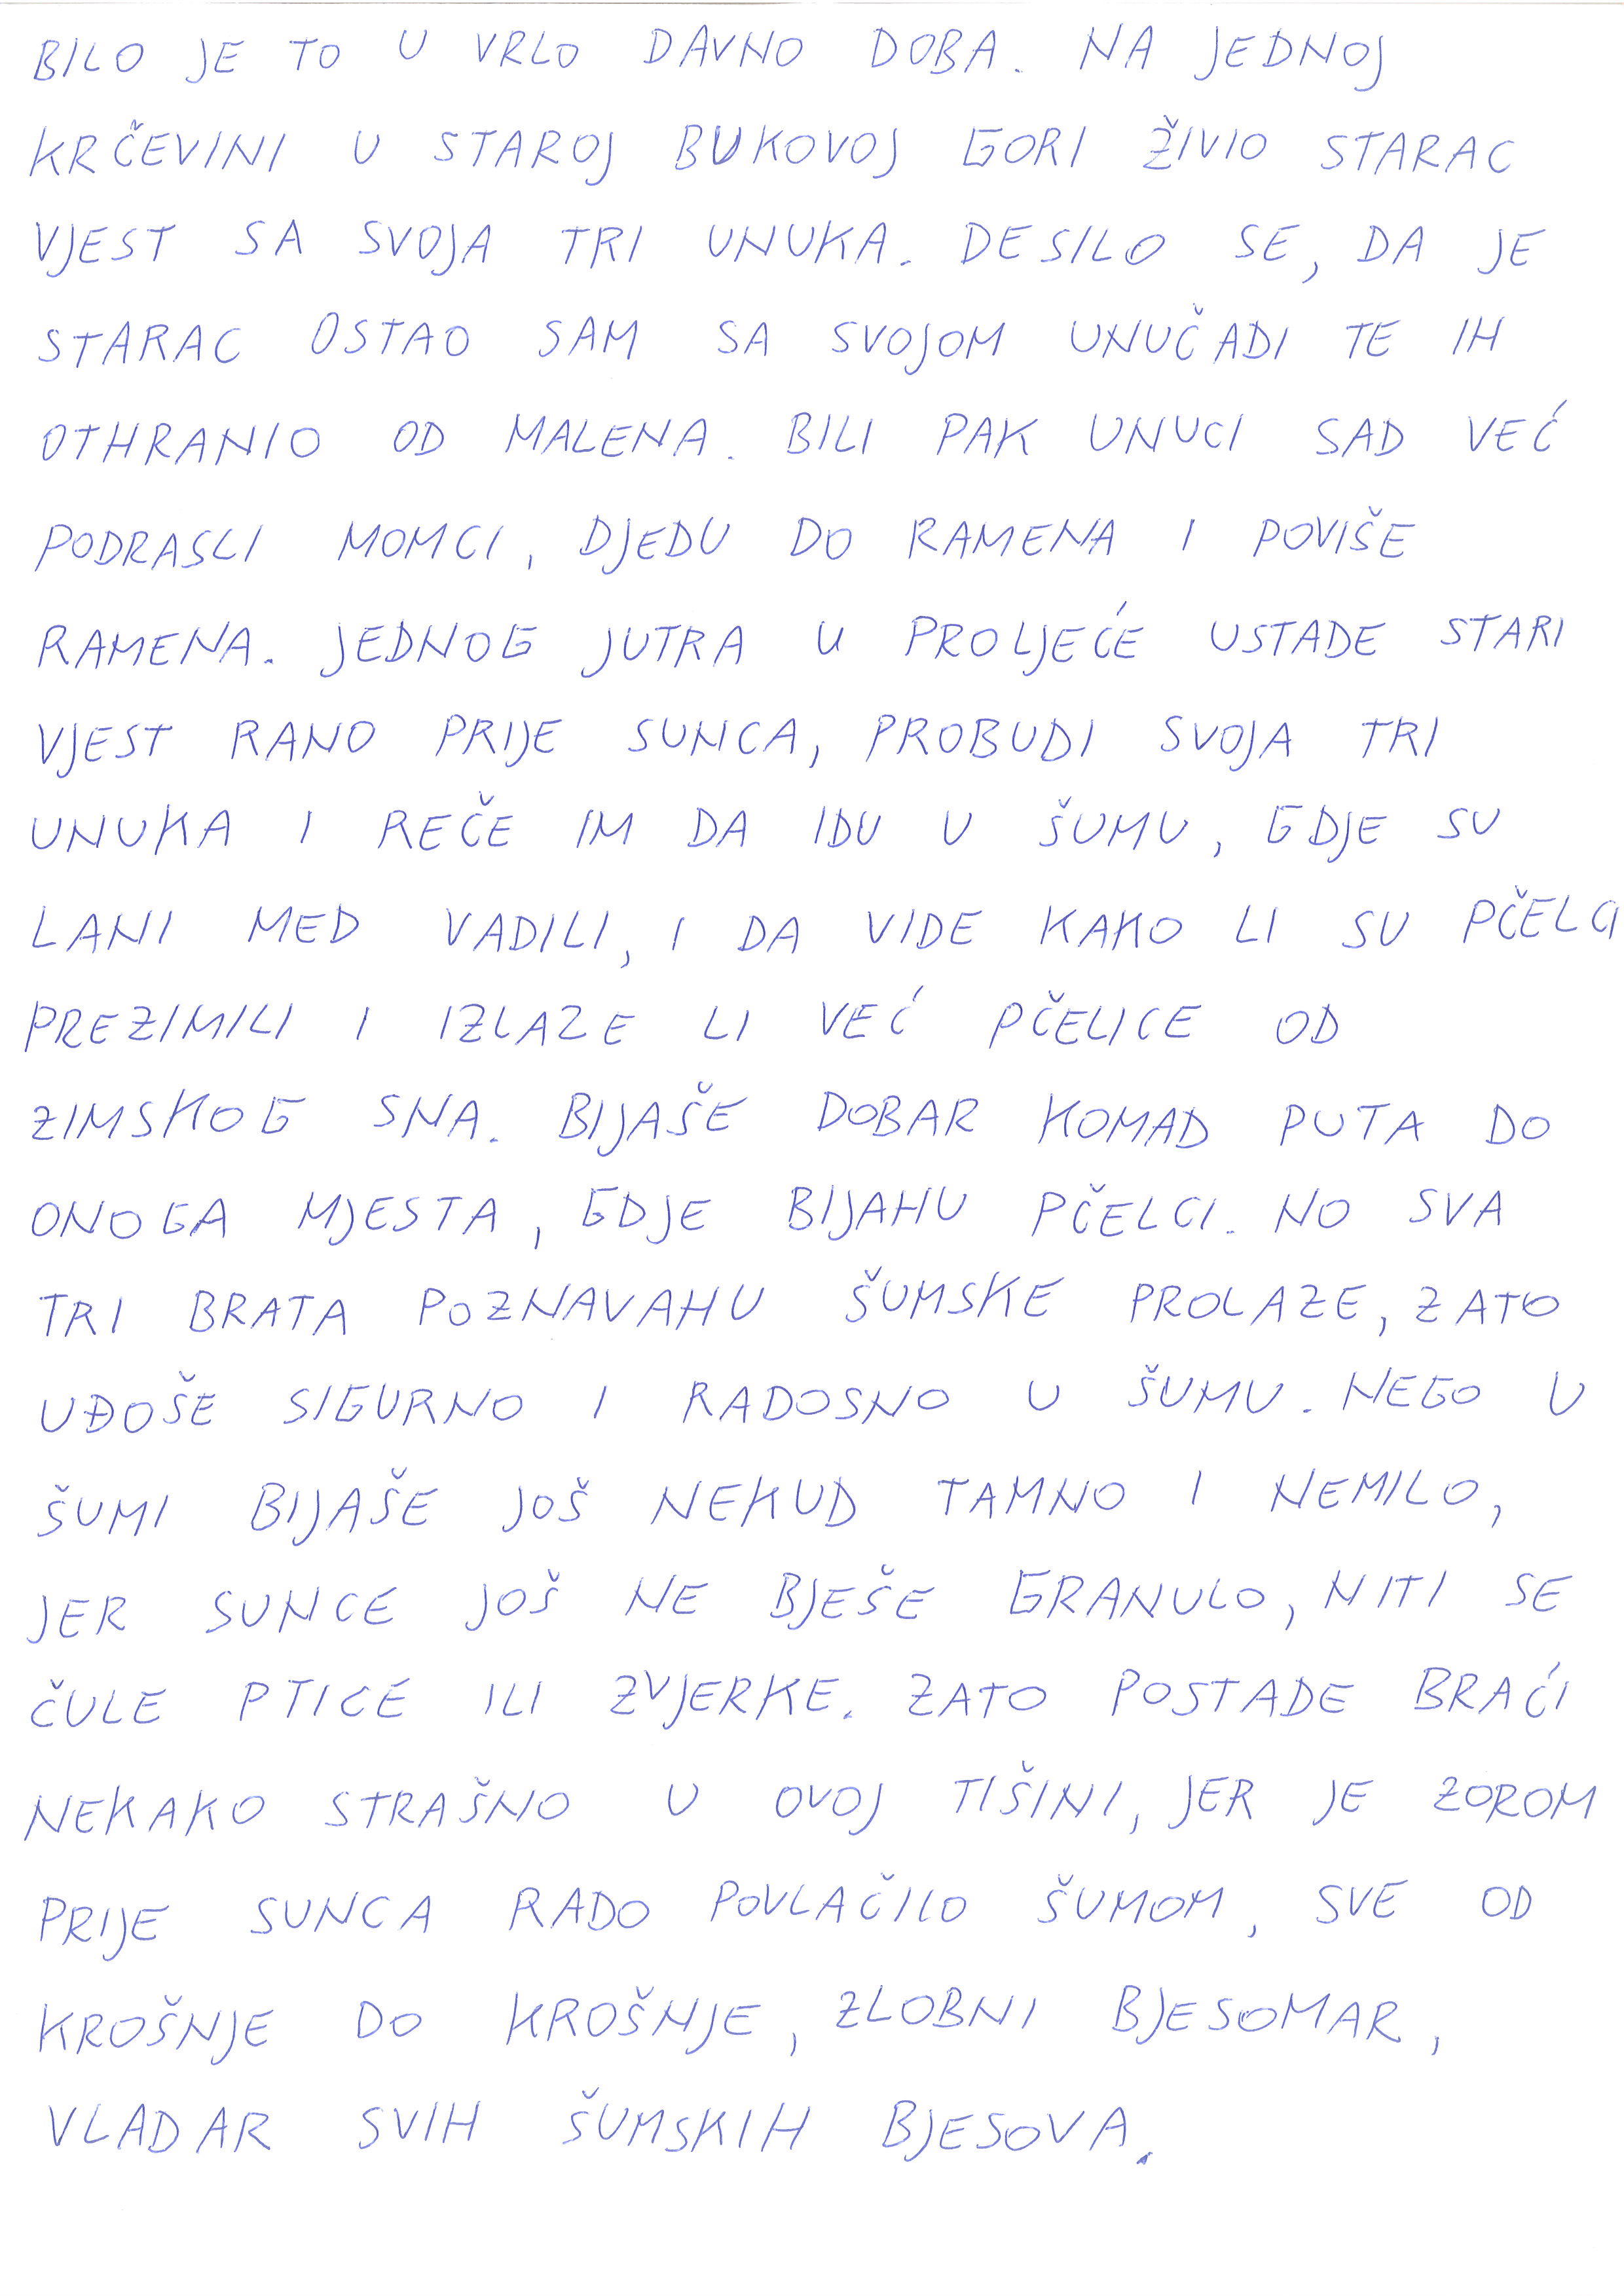 BILO JE TO U VRLO DAVNO DOBA. NA JEDNOJ
KRČEVINI U STAROJ BUKOVOJ GORI ŽIVIO STARAC
VJEST SA SVOJA TRI UNUKA. DESILO SE, DA JE
STARAC OSTAO SAM SA SVOJOM UNUČADI TE IH
OTHRANIO OD MALENA. BILI PAK UNUCI SAD VEĆ
PODRASLI MOMCI, DJEDU DO RAMENA I POVIŠE
RAMENA. JEDNOG JUTRA U PROLJEĆE USTADE STARI
VJEST RANO PRIJE SUNCA, PROBUDI SVOJA TRI
UNUKA I REČE IM DA IDU U ŠUMU, GDJE SU
LANI MED VADILI, I DA VIDE KAKO LI SU PČELCI
PREZIMILI I IZLAZE LI VEĆ PČELICE OD
ZIMSKOG SNA. BIJAŠE DOBAR KOMAD PUTA DO
ONOGA MJESTA, GDJE BIJAHU PČELCI. NO SVA
TRI BRATA POZNAVAHU ŠUMSKE PROLAZE, ZATO
UĐOŠE SIGURNO I RADOSNO U ŠUMU. NEGO U
ŠUMI BIJAŠE JOŠ NEKUD TAMNO I NEMILO,
JER SUNCE JOŠ NE BJEŠE GRANULO, NITI SE
ČULE PTICE ILI ZVJERKE. ZATO POSTADE BRAĆI
NEKAKO STRAŠNO U OVOJ TIŠINI, JER JE ZOROM
PRIJE SUNCA RADO POVLAČILO ŠUMOM, SVE OD
KROŠNJE DO KROŠNJE, ZLOBNI BJESOMAR,
VLADAR SVIH ŠUMSKIH BJESOVA.